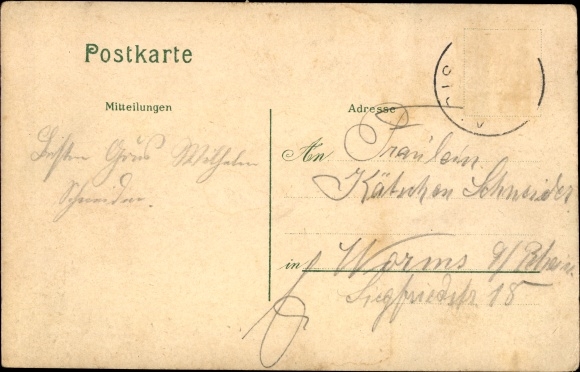 Postkarte
Mitteilungen
Adresse
Besten Grus Wilhelm
Schneider.
An Fräulein
Kätchen Schneider
in Worms a/Rhein.
Siegfriedstr 15